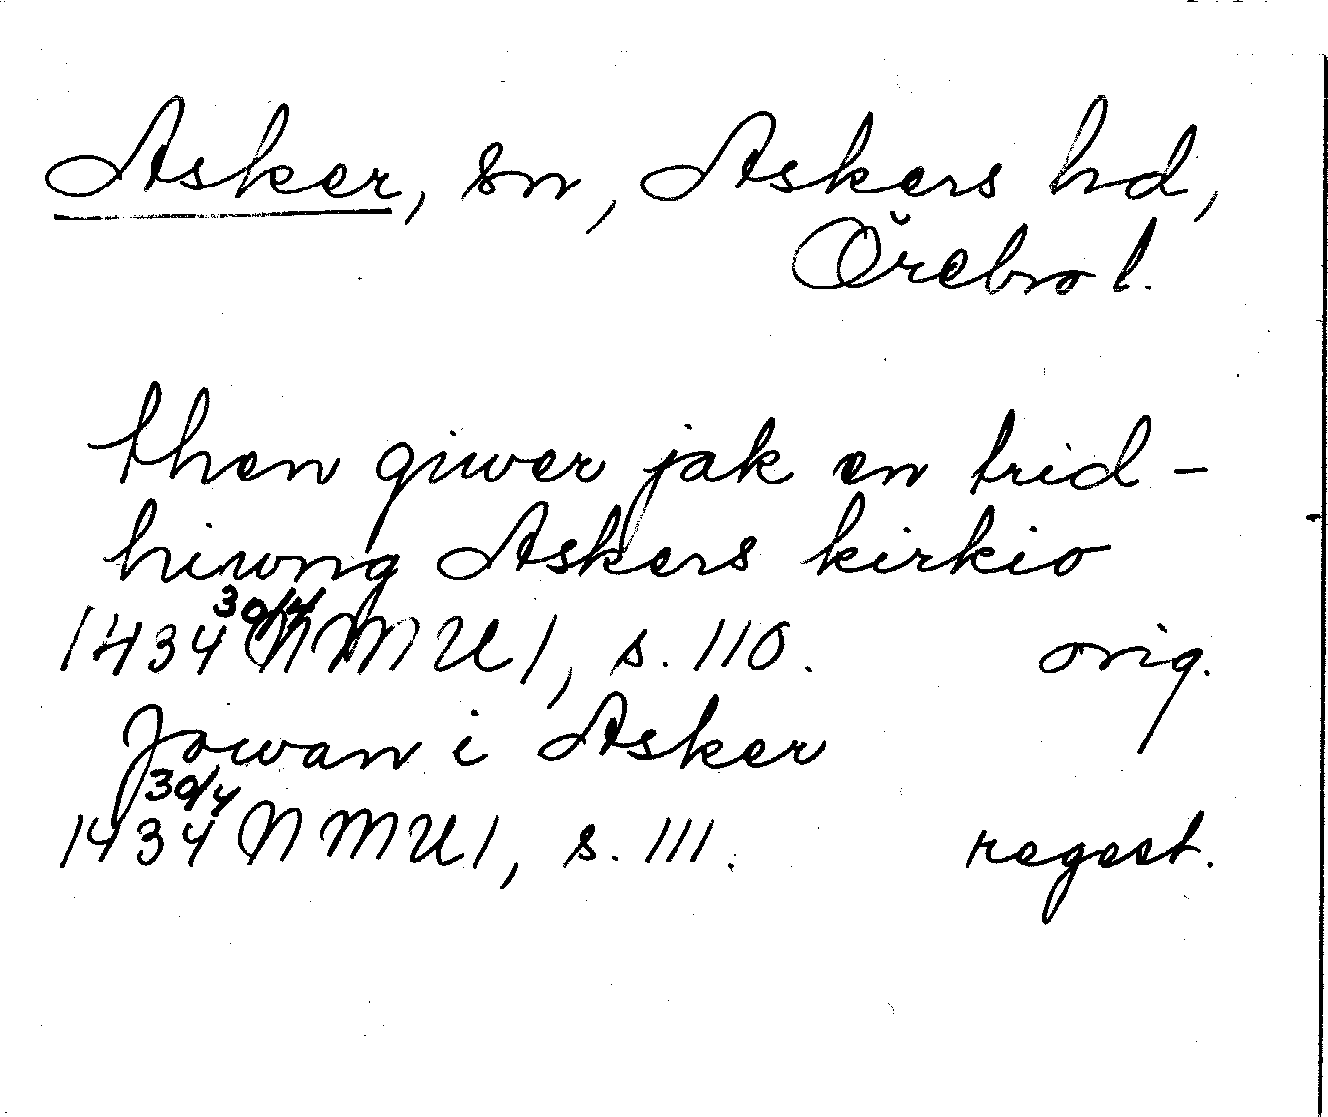 Asker, sn, Askers hd,
Örebro l.
then giwer jak en trid-
hiwng Askers kirkio
1434 30/4 NMU 1, s. 110. orig.
Jowan i Asker
1434 30/4 NMU 1, s. 111. regest.